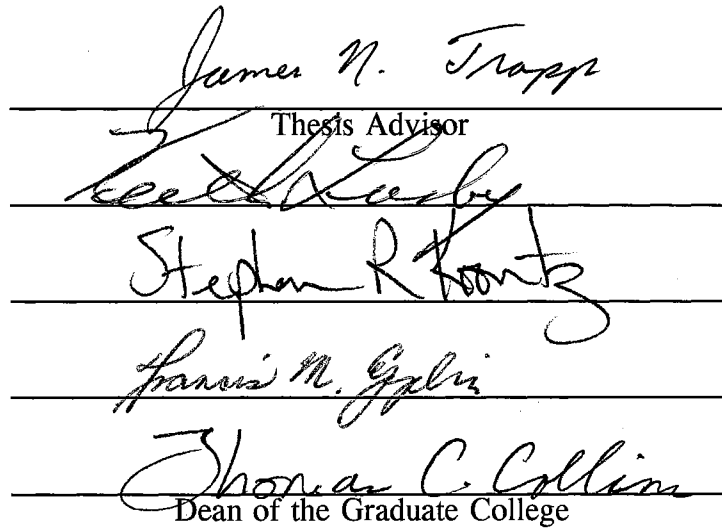 James N. Trapp
Thesis Advisor
Keith Lusby
Stephen R Koontz
Francis M. Epplin
Thomas C. Collins
Dean of the Graduate College